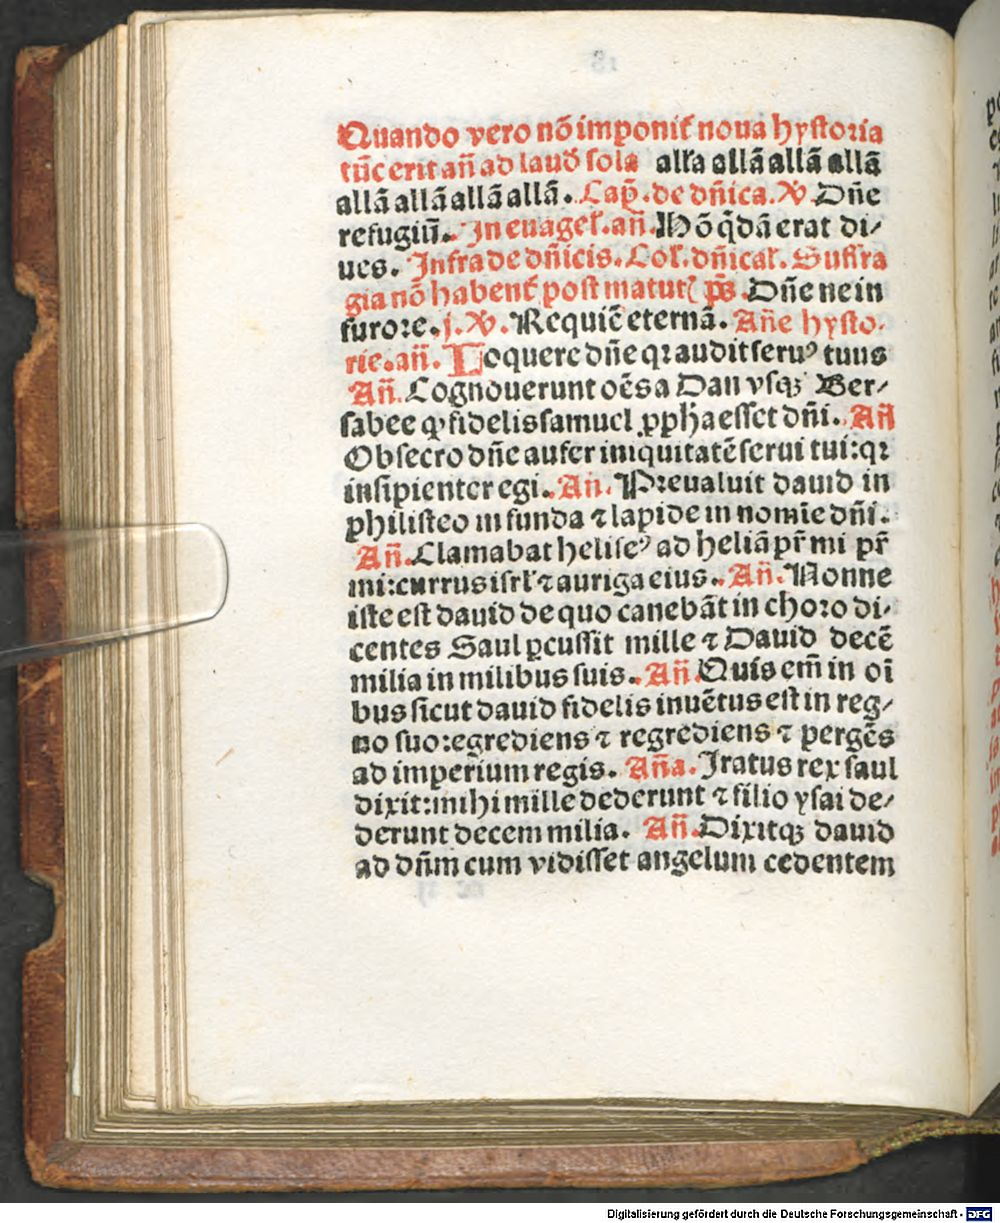 Quando vero nō imponit᷑ noua hystoria
tūc erit an̄ ad laud᷑ sola all'a allā allā allā
allā allā allā allā. Cap̄. de dn̄ica. ℣ Dn̄e
refugiū. In euāgel'. an̄. Hō q̄dā erat di⸗
ues. Infra de dn̄icis. Col'. dn̄ical'. Suffra
gia nō habent᷑ post matut᷑ p̄s. Dn̄e ne in
furore. j. ℣. Requiē eternā. An̄e hysto.
rie. an̄. Loquere dn̄e qꝛ audit seruꝰ tuus
An̄. Cognouerunt oēs a Dan vsqꝫ Ber⸗
sabee ꝙ fidelis samuel ꝓpha esset dn̄i. An̄
Obsecro dn̄e aufer iniquitatē serui tui: qꝛ
insipienter egi. An̄. Preualuit dauid in
philisteo in funda ⁊ lapide in nomīe dn̄i.
An̄. Clamabat heliseꝰ ad heliā pr̄ mi pr̄
mi: currus isrl' ⁊ auriga eius. An̄. Nonne
iste est dauid de quo canebāt in choro di⸗
centes Saul ꝑcussit mille ⁊ Dauid decē
milia in milibus suis. An̄. Quis em̄ in oī
bus sicut dauid fidelis inuētus est in reg⸗
no suo: egrediens ⁊ regrediens ⁊ pergēs
ad imperium regis. An̄a. Iratus rex saul
dixit: mihi mille dederunt ⁊ filio ysai de⸗
derunt decem milia. An̄. Dixitqꝫ dauid
ad dn̄m cum vidisset angelum cedentem
Digitalisierung gefördert durch die Deutsche Forschungsgemeinschaft - DFG